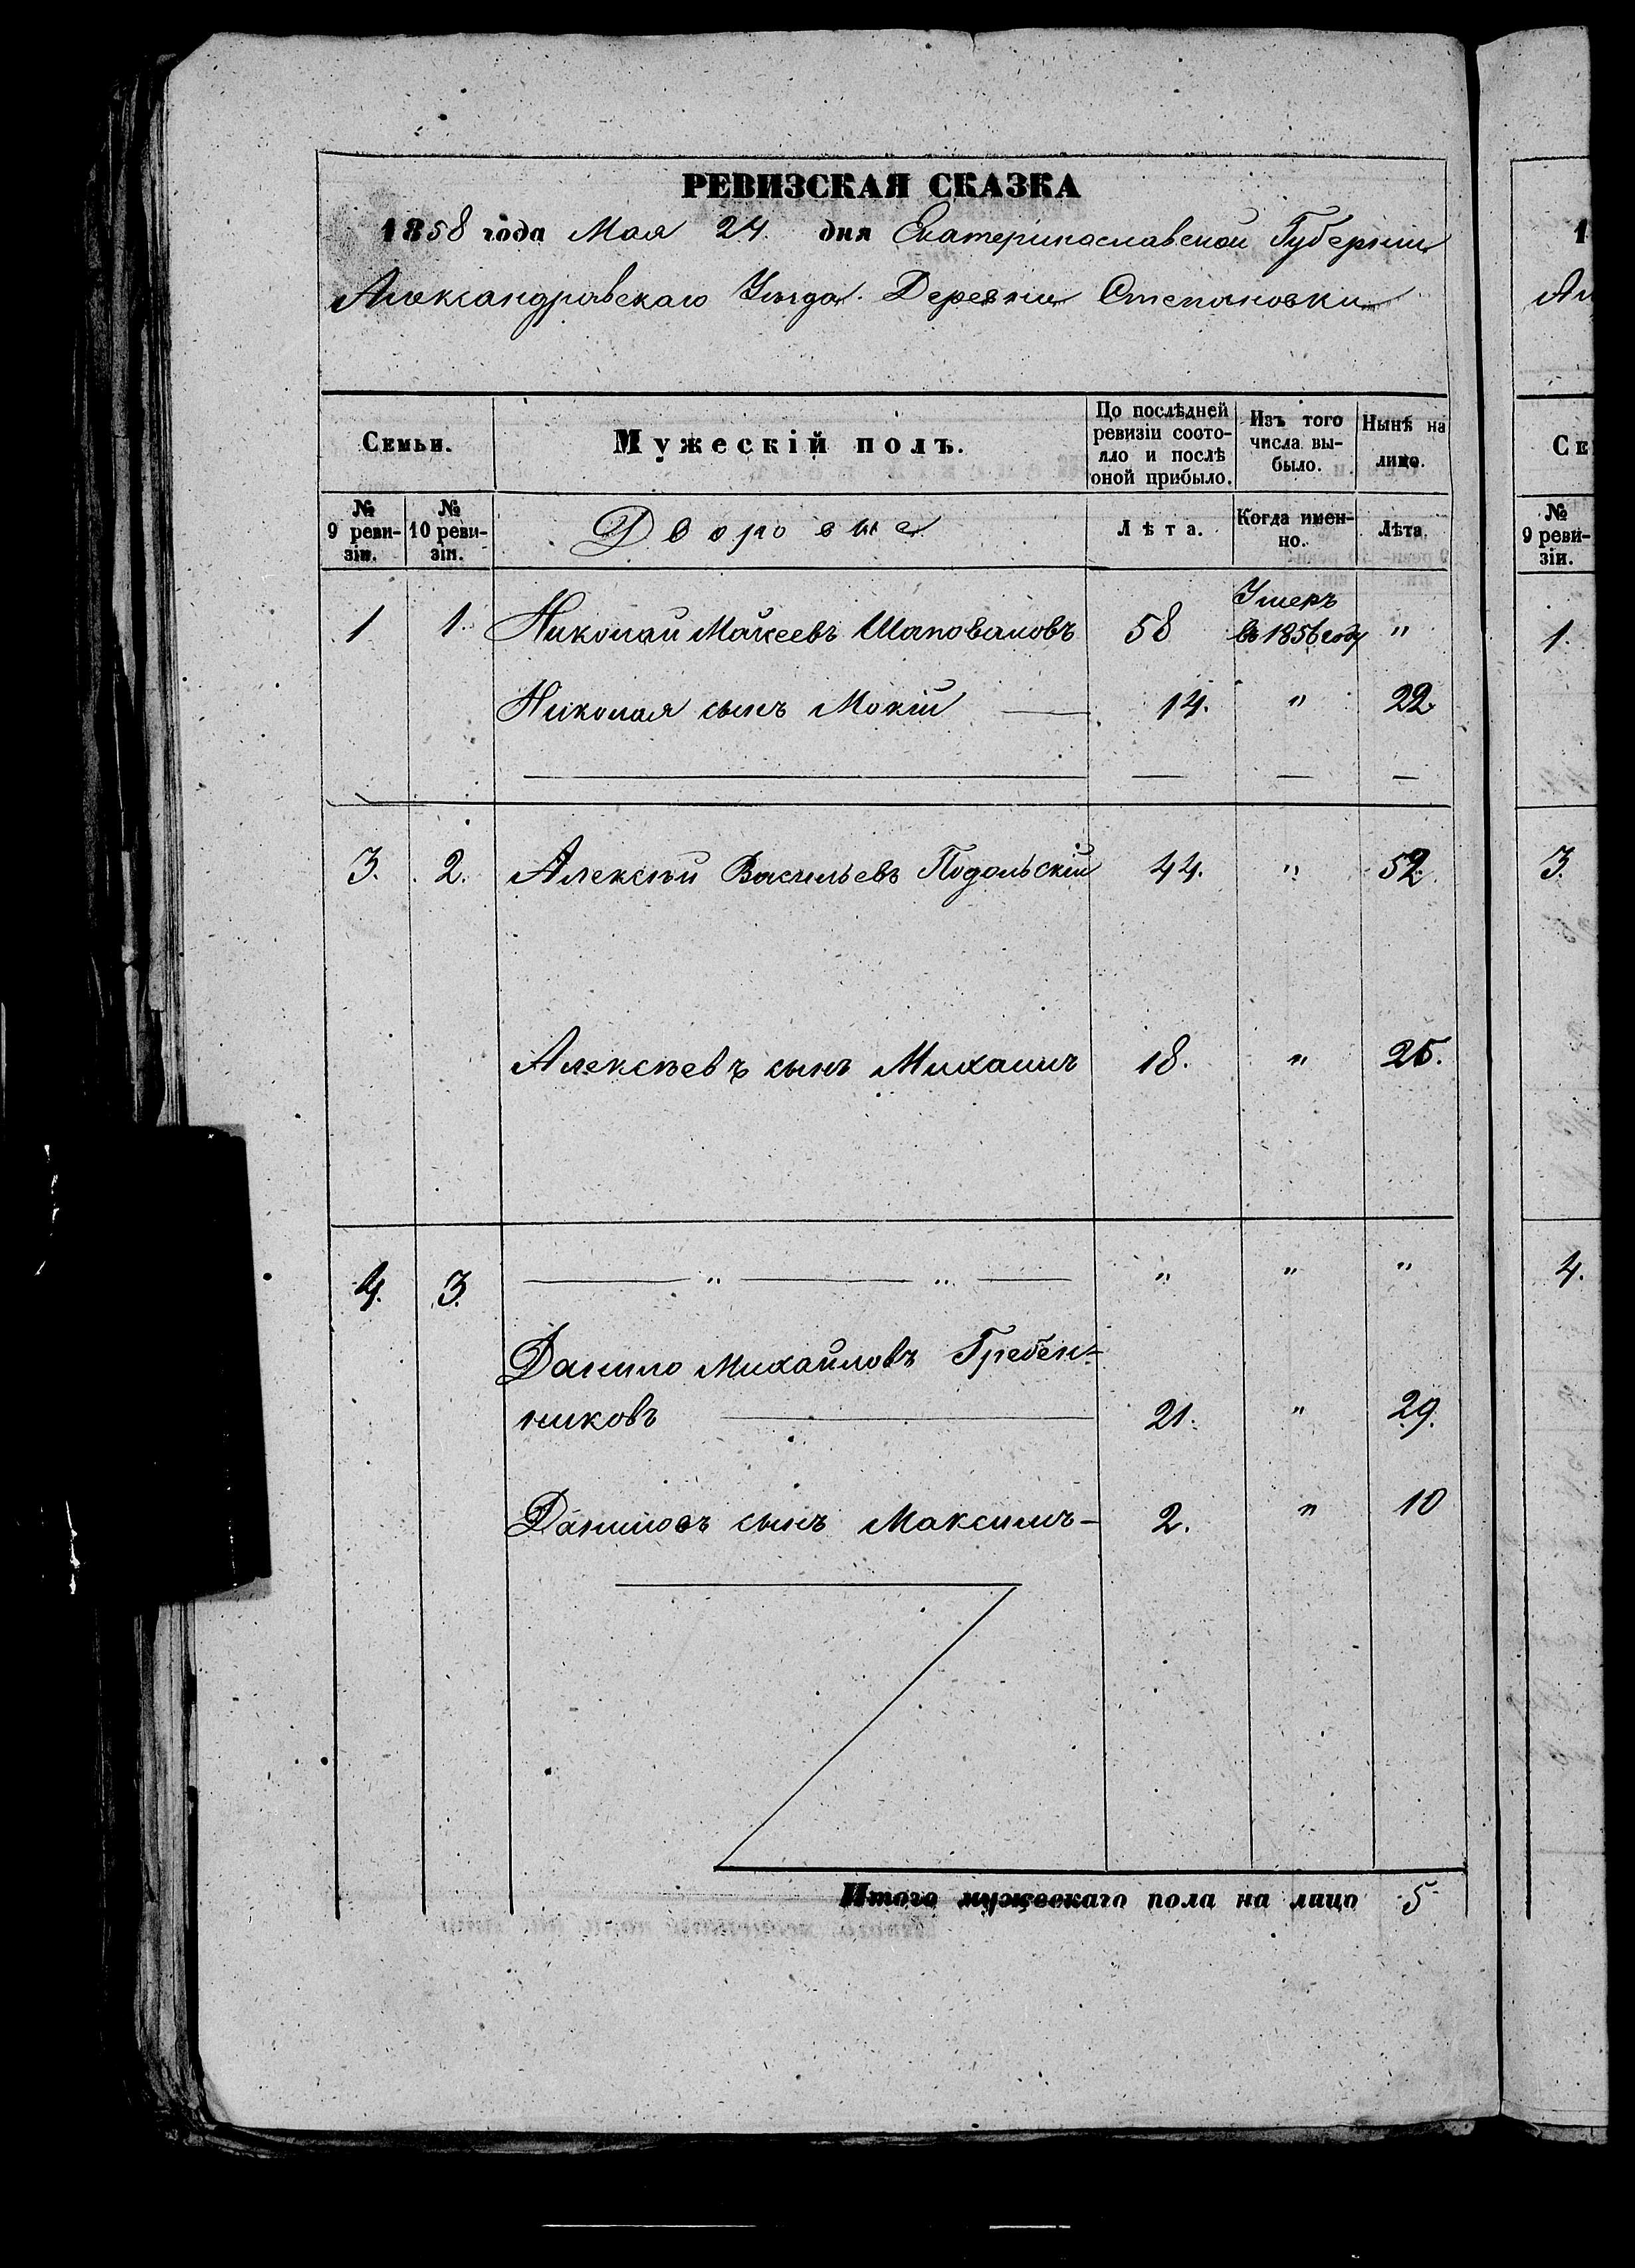 РЕВИЗСКАЯ СКАЗКА
1858 года Мая 24. дня Екатеринославской Губерніи
Александровскаго Уѣзда. Деревни Степановки
Семьи.
Мужескій полъ.
По послѣдней ревизіи состояло и послѣ оной прибыло.
Изъ того числа выбыло.
Нынѣ на лицо.
№ 9 ревизіи.
№ 10 ревизіи.
Дворовые
Лѣта.
Когда именно.
Лѣта.
1 1. Николай Макеевъ Шаповаловъ 58 Умеръ въ 1856 году "
Николая сынъ Мокій 14. " 22.
3. 2. Алексѣй Васильевъ Подольскій 44. " 52.
Алексѣевъ сынъ Михаилъ 18. " 26.
4. 3. " " " " "
Данило Михайловъ Гребен-
никовъ 21. " 29.
Даниловъ сынъ Максимъ 2. " 10
Итого мужескаго пола на лицо 5
1
Ал
Се
№ 9 ревизіи.
1.
3.
4.